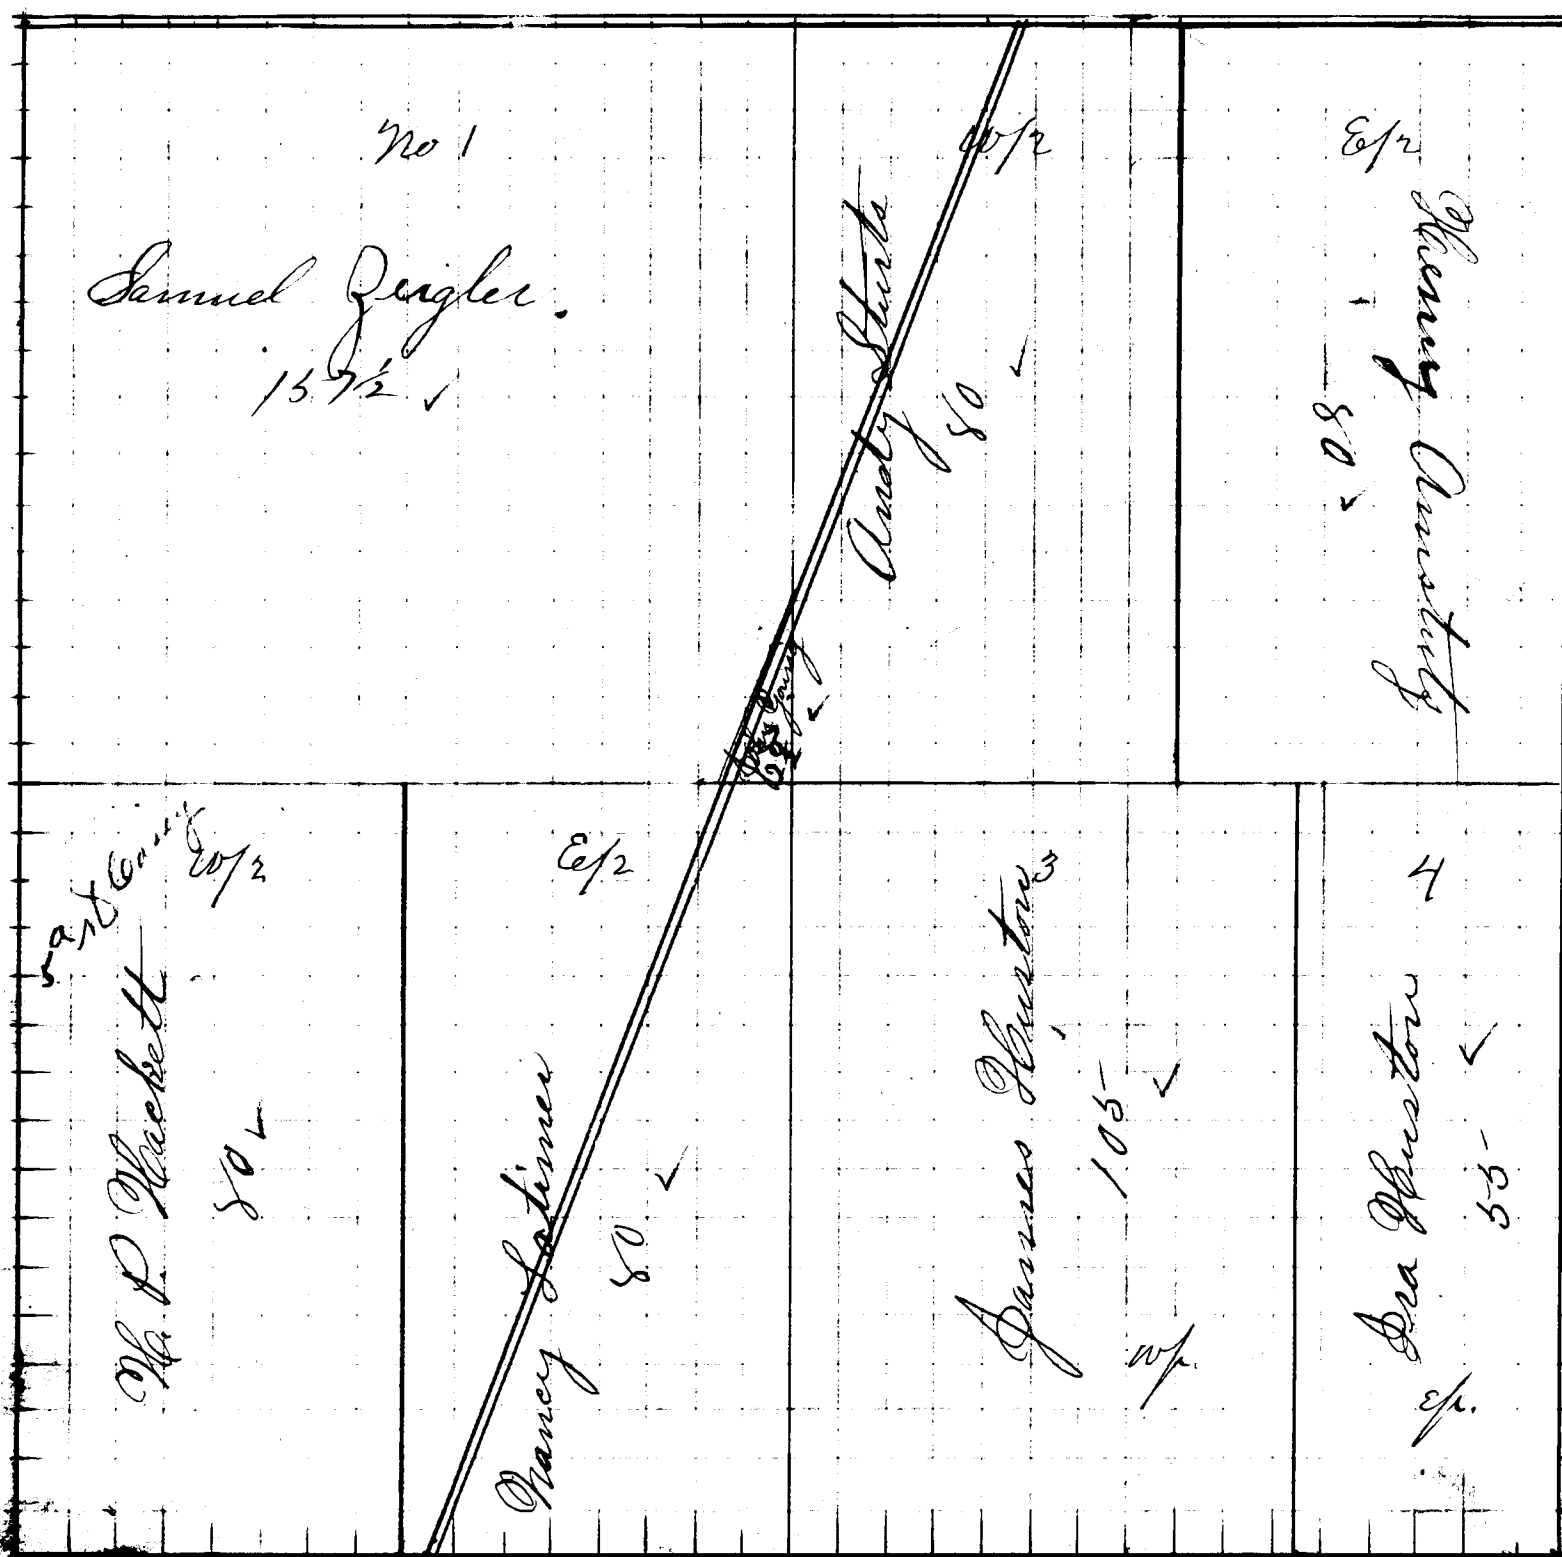 No 1
Samuel Zeigler.
157½ ✓
W/2
Andy Sturts
80 ✓
E/2
Henry Armstrong
80 ✓
Young
✓
W/2
5 a
H. P. Hackett
80 ✓
E/2
Nancy Latimer
80 ✓
3
James Huston
105 ✓
W/p.
4
Ira Huston
55 ✓
E/p.